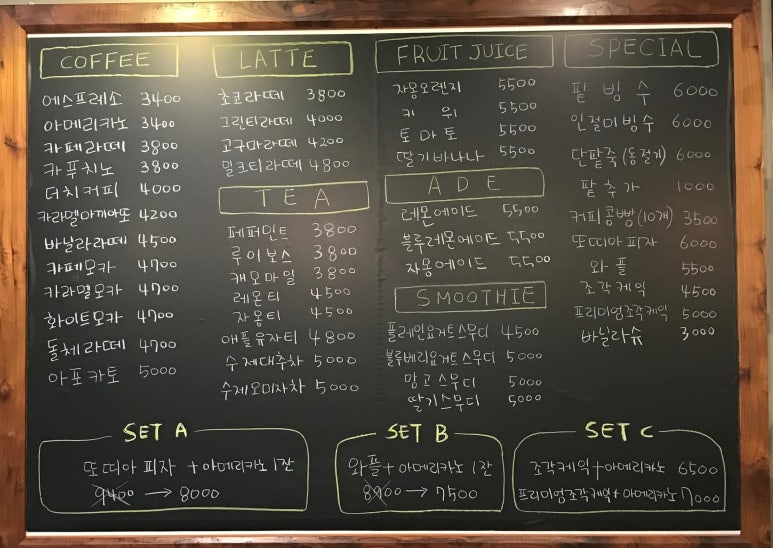 COFFEE
에스프레소 3400
아메리카노 3400
카페라떼 3800
카푸치노 3800
더치커피 4000
카라멜마끼아또 4200
바닐라라떼 4500
카페모카 4700
카라멜모카 4700
화이트모카 4700
돌체라떼 4700
아포카토 5000
LATTE
초코라떼 3800
그린티라떼 4000
고구마라떼 4200
밀크티라떼 4800
TEA
페퍼민트 3800
루이보스 3800
캐모마일 3800
레몬티 4500
자몽티 4500
애플유자티 4800
수제대추차 5000
수제오미자차 5000
FRUIT JUICE
자몽오렌지 5500
키위 5500
토마토 5500
딸기바나나 5500
ADE
레몬에이드 5500
블루레몬에이드 5500
자몽에이드 5500
SMOOTHIE
플레인요거트스무디 4500
블루베리요거트스무디 5000
망고스무디 5000
딸기스무디 5000
SPECIAL
팥빙수 6000
인절미빙수 6000
단팥죽(동절기) 6000
팥추가 1000
커피콩빵(10개) 3500
또띠아피자 6000
와플 5500
조각케익 4500
프리미엄조각케익 5000
바닐라슈 3000
SET A
또띠아피자 + 아메리카노 1잔
9400 → 8000
SET B
와플 + 아메리카노 1잔
8900 → 7500
SET C
조각케익 + 아메리카노 6500
프리미엄조각케익 + 아메리카노 7000